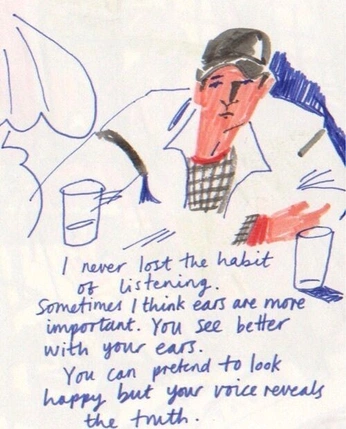 I never lost the habit
of listening.
Sometimes I think ears are more
important. You see better
with your ears.
You can pretend to look
happy but your voice reveals
the truth.